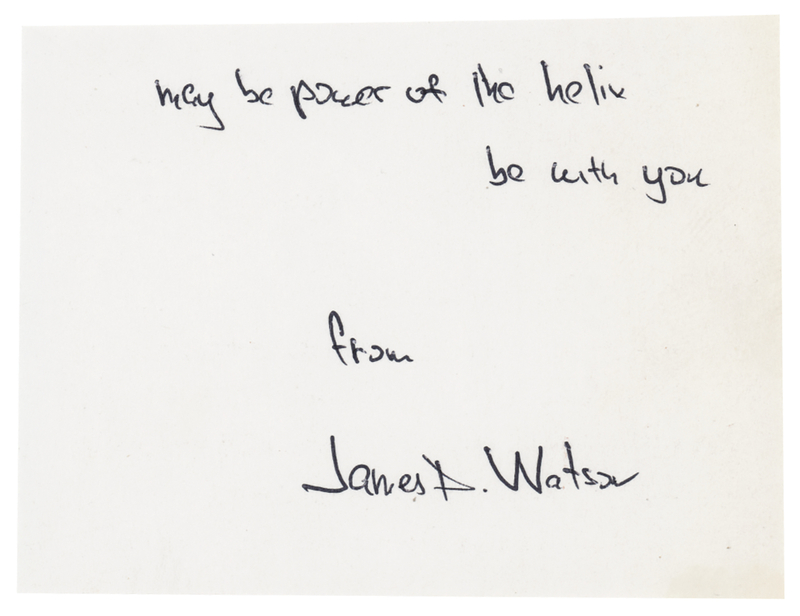 may be power of the helix
be with you
from
James D. Watson